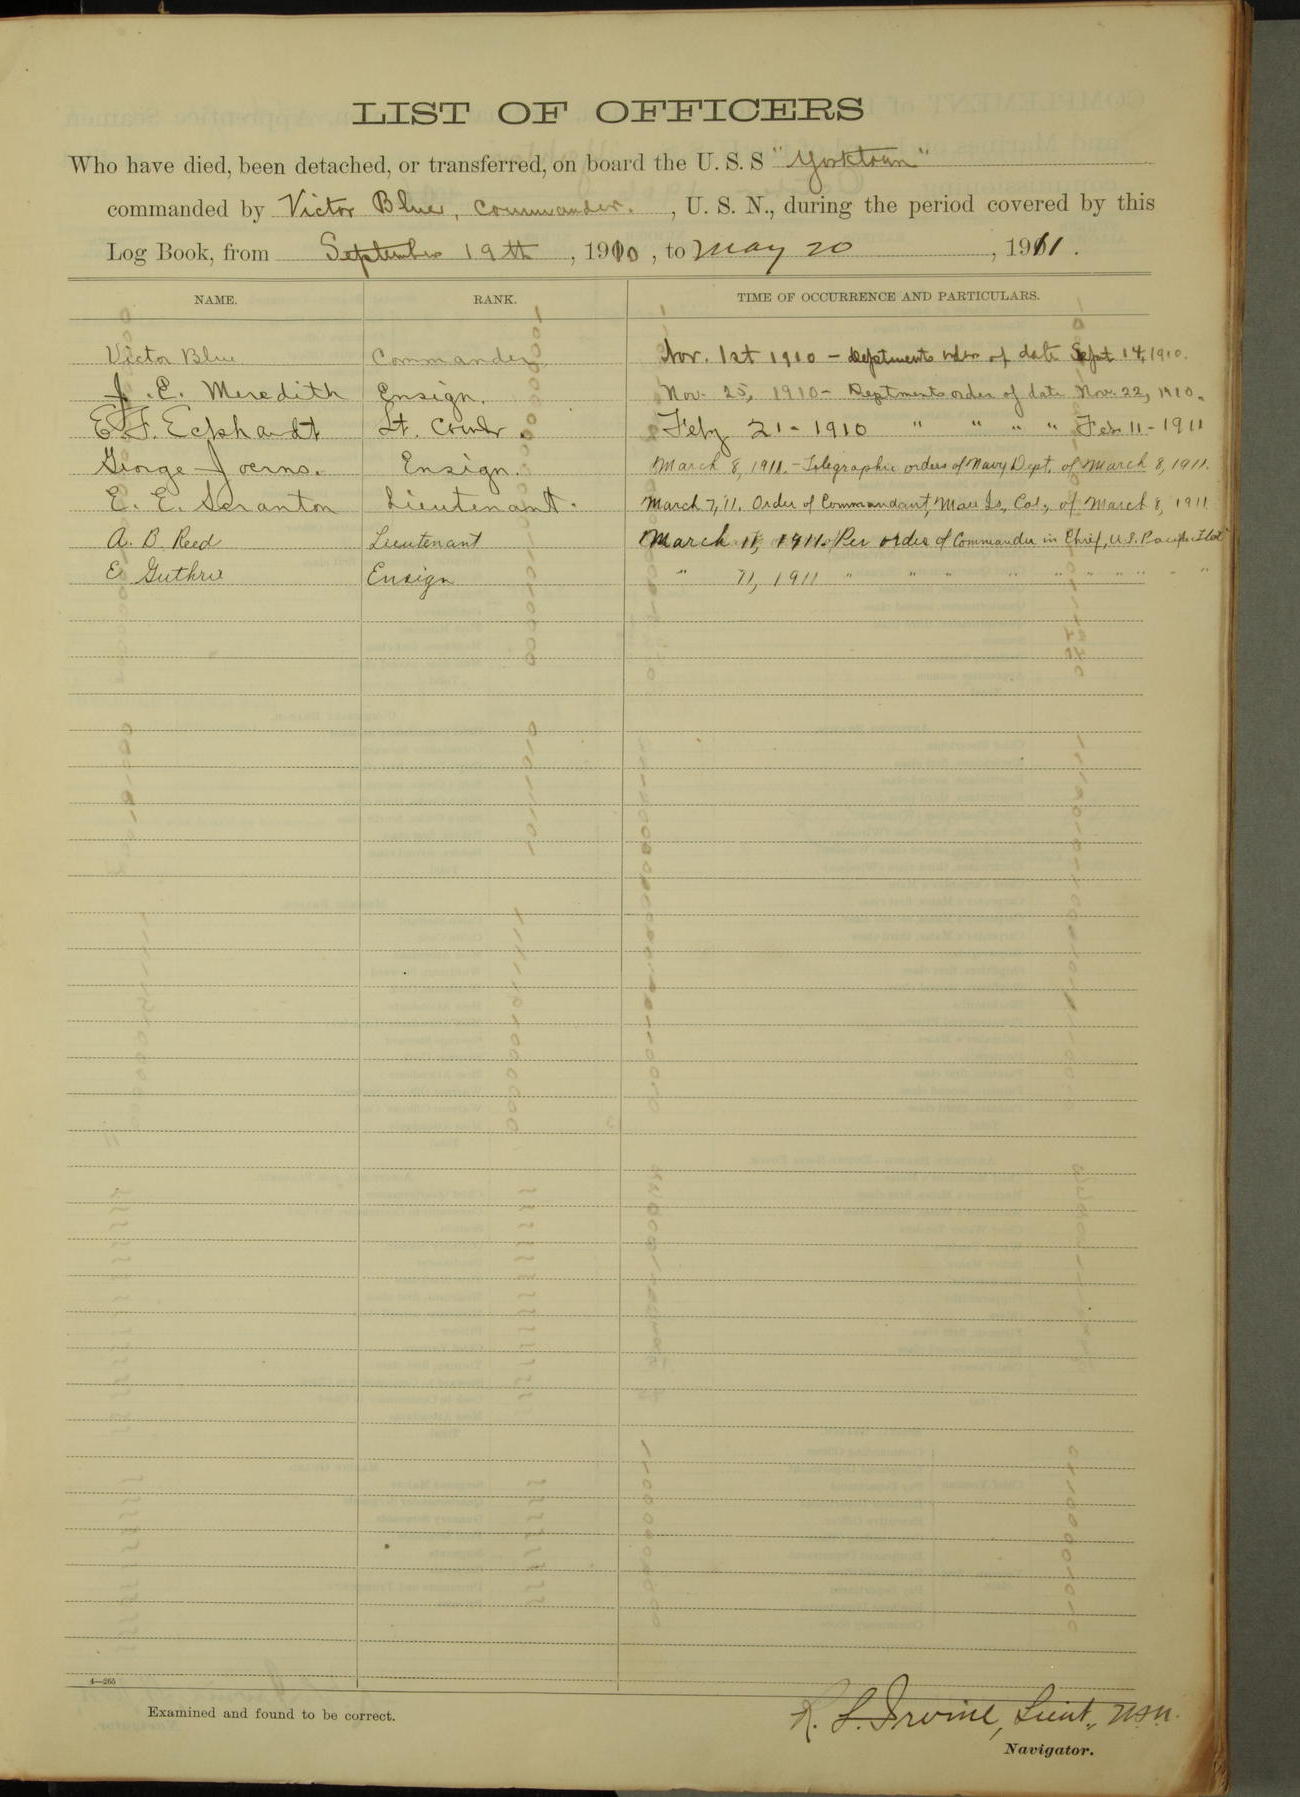 LIST OF OFFICERS
Who have died, been detached, or transferred, on board the U. S. S "Yorktown"
commanded by Victor Blue, Commander. , U. S. N., during the period covered by this
Log Book, from September 19th , 1910 , to May 20 , 1911 .
NAME. RANK. TIME OF OCCURRENCE AND PARTICULARS.
Victor Blue Commander Nov. 1st 1910 - Deptments order of date Sept 14, 1910.
J. E. Meredith Ensign. Nov. 25, 1910 - Deptments order of date Nov. 22, 1910.
E. F. Eckhardt Lt. Comdr. Feby 21 - 1910 " " " " Feb 11 - 1911
George Joerns. Ensign. March 8, 1911. - Telegraphic orders of Navy Dept. of March 8, 1911.
E. E. Scranton Lieutenant. March 7, '11. Order of Commandant, Mare Is, Cal., of March 8, 1911
A. B. Reed Lieutenant March 11, 1911. Per order of Commander in Chief, U.S. Pacific Fleet
E Guthrie Ensign " 11, 1911 " " " " " " " " " "
4—265
Examined and found to be correct.
R. L. Irvine, Lieut., USN.
Navigator.